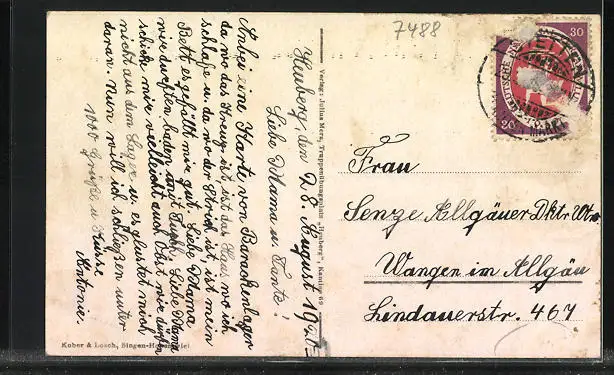 7488
Heuberg, den 28. August 1920.
Liebe Mama u. Tante!
Anbei eine Karte vom Barackenlager
da, wo das Kreuz ist, ist das Haus, wo ich
schlafe u. da wo der Strich ist, ist mein
Bett, es gefällt mir gut. Liebe Mama
wir durften, baden mit Liebe Mama
schicke mir vielleicht auch Obst wir dürfen
nicht aus dem Lager u. es gelustet mich
daran. Nun will ich schließen unter
1000 Grüße u. Küsse
Antonie.
Kober & Losch, Singen-Hohentwiel
Verlag: Julius Merz, Truppenübungsplatz „Heuberg", Kantine 69
STETTEN
30
20
MARKT
Frau
Senze Allgäuer
Wangen im Allgäu
Lindauerstr. 467